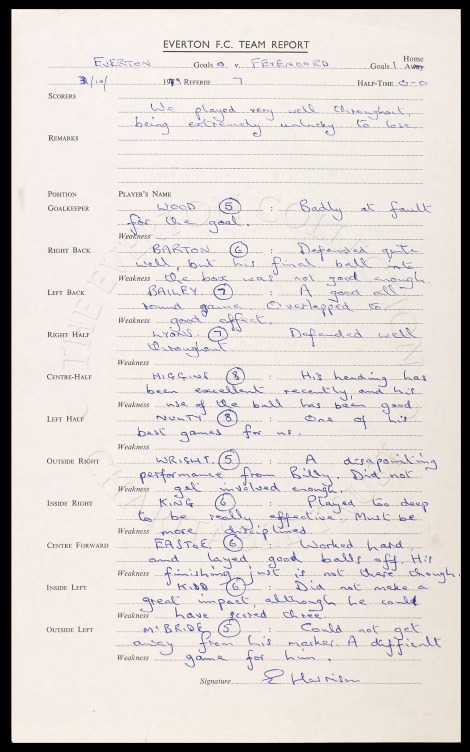 EVERTON F.C. TEAM REPORT
EVERTON Goals 0 v. FEYENOORD Goals 1 Home Away
3/10/ 1979 REFEREE 7 HALF-TIME 0-0
SCORERS
We played very well throughout,
being extremely unlucky to lose
REMARKS
POSITION PLAYER'S NAME
GOALKEEPER WOOD 5 : Badly at fault
for the goal.
Weakness
RIGHT BACK BARTON 6 : Defended quite
well, but his final ball into
Weakness the box was not good enough.
LEFT BACK BAILEY 7 : A good all
round game Overlapped to
Weakness good effect.
RIGHT HALF LYONS 7 Defended well
throughout
Weakness
CENTRE-HALF HIGGINS 8 : His heading has
been excellent recently, and his
Weakness use of the ball has been good
LEFT HALF NULTY 8 : One of his
best games for us.
Weakness
OUTSIDE RIGHT WRIGHT. 5 : A disapointing
performance from Billy. Did not
Weakness get involved enough.
INSIDE RIGHT KING 6 : Played too deep
to be really effective. Must be
Weakness more disciplined.
CENTRE FORWARD EASTOE 6 : Worked hard,
and layed good balls off. His
Weakness finishing just is not there though.
INSIDE LEFT KIDD 6 : Did not make a
great impact, although he could
Weakness have scored three
OUTSIDE LEFT McBRIDE 5 : Could not get
away from his marker. A difficult
Weakness game for him.
Signature E Harrison